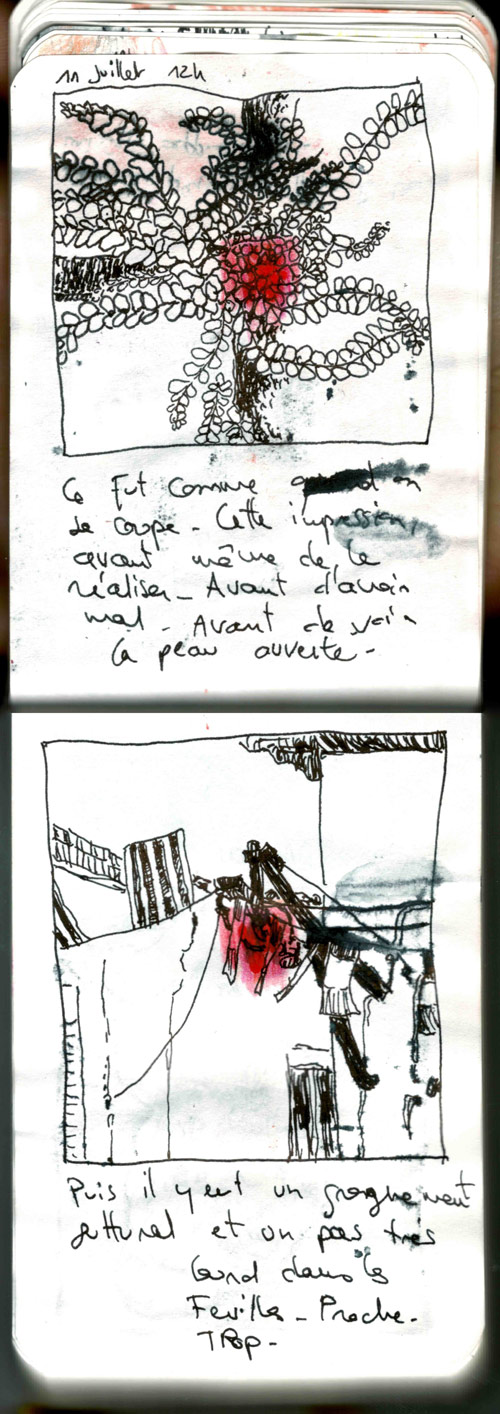 11 Juillet 12h
Ce fut comme quand on
se coupe - Cette impression,
avant même de le
réaliser - Avant d'avoir
mal - Avant de voir
la peau ouverte -
Puis il y eut un grognement
guttural et un pas très
lourd dans les
Feuilles - Proche -
TROP -